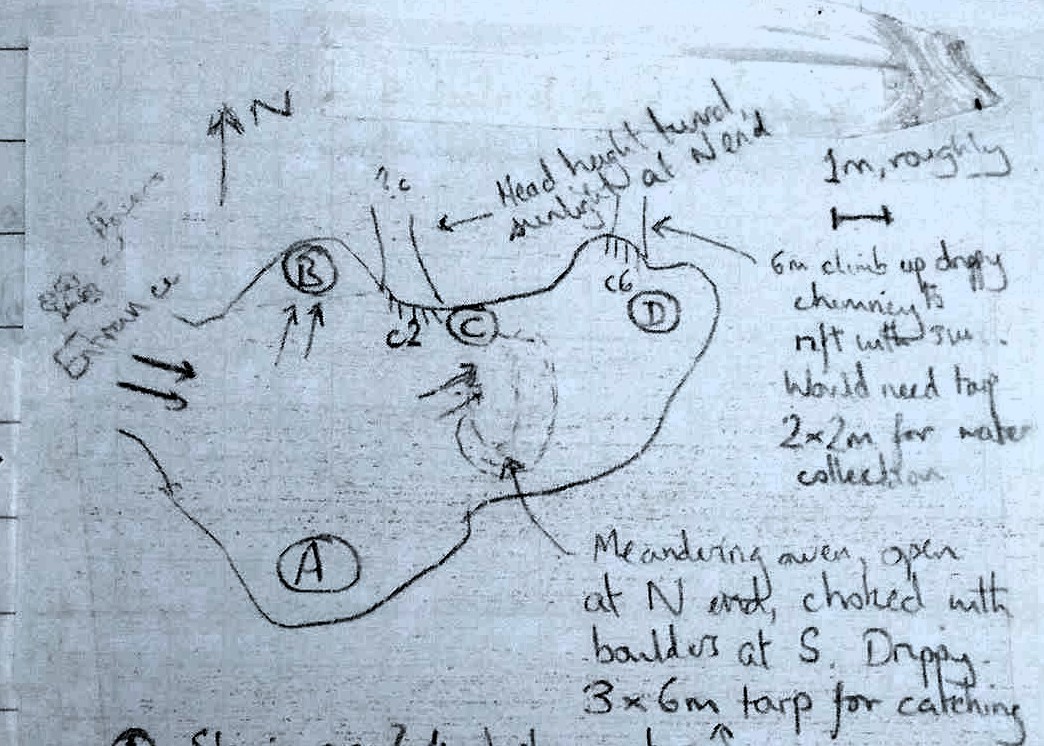 N
?c
Head height tunnel,
sunlight at N end
1m, roughly
Entrance
B
c2
C
c6
D
6m climb up drippy
chimney to
rift with
Would need tarp
2x2m for water
collection
A
Meandering aven, open
at N end, choked with
boulders at S. Drippy.
3x6m tarp for catching